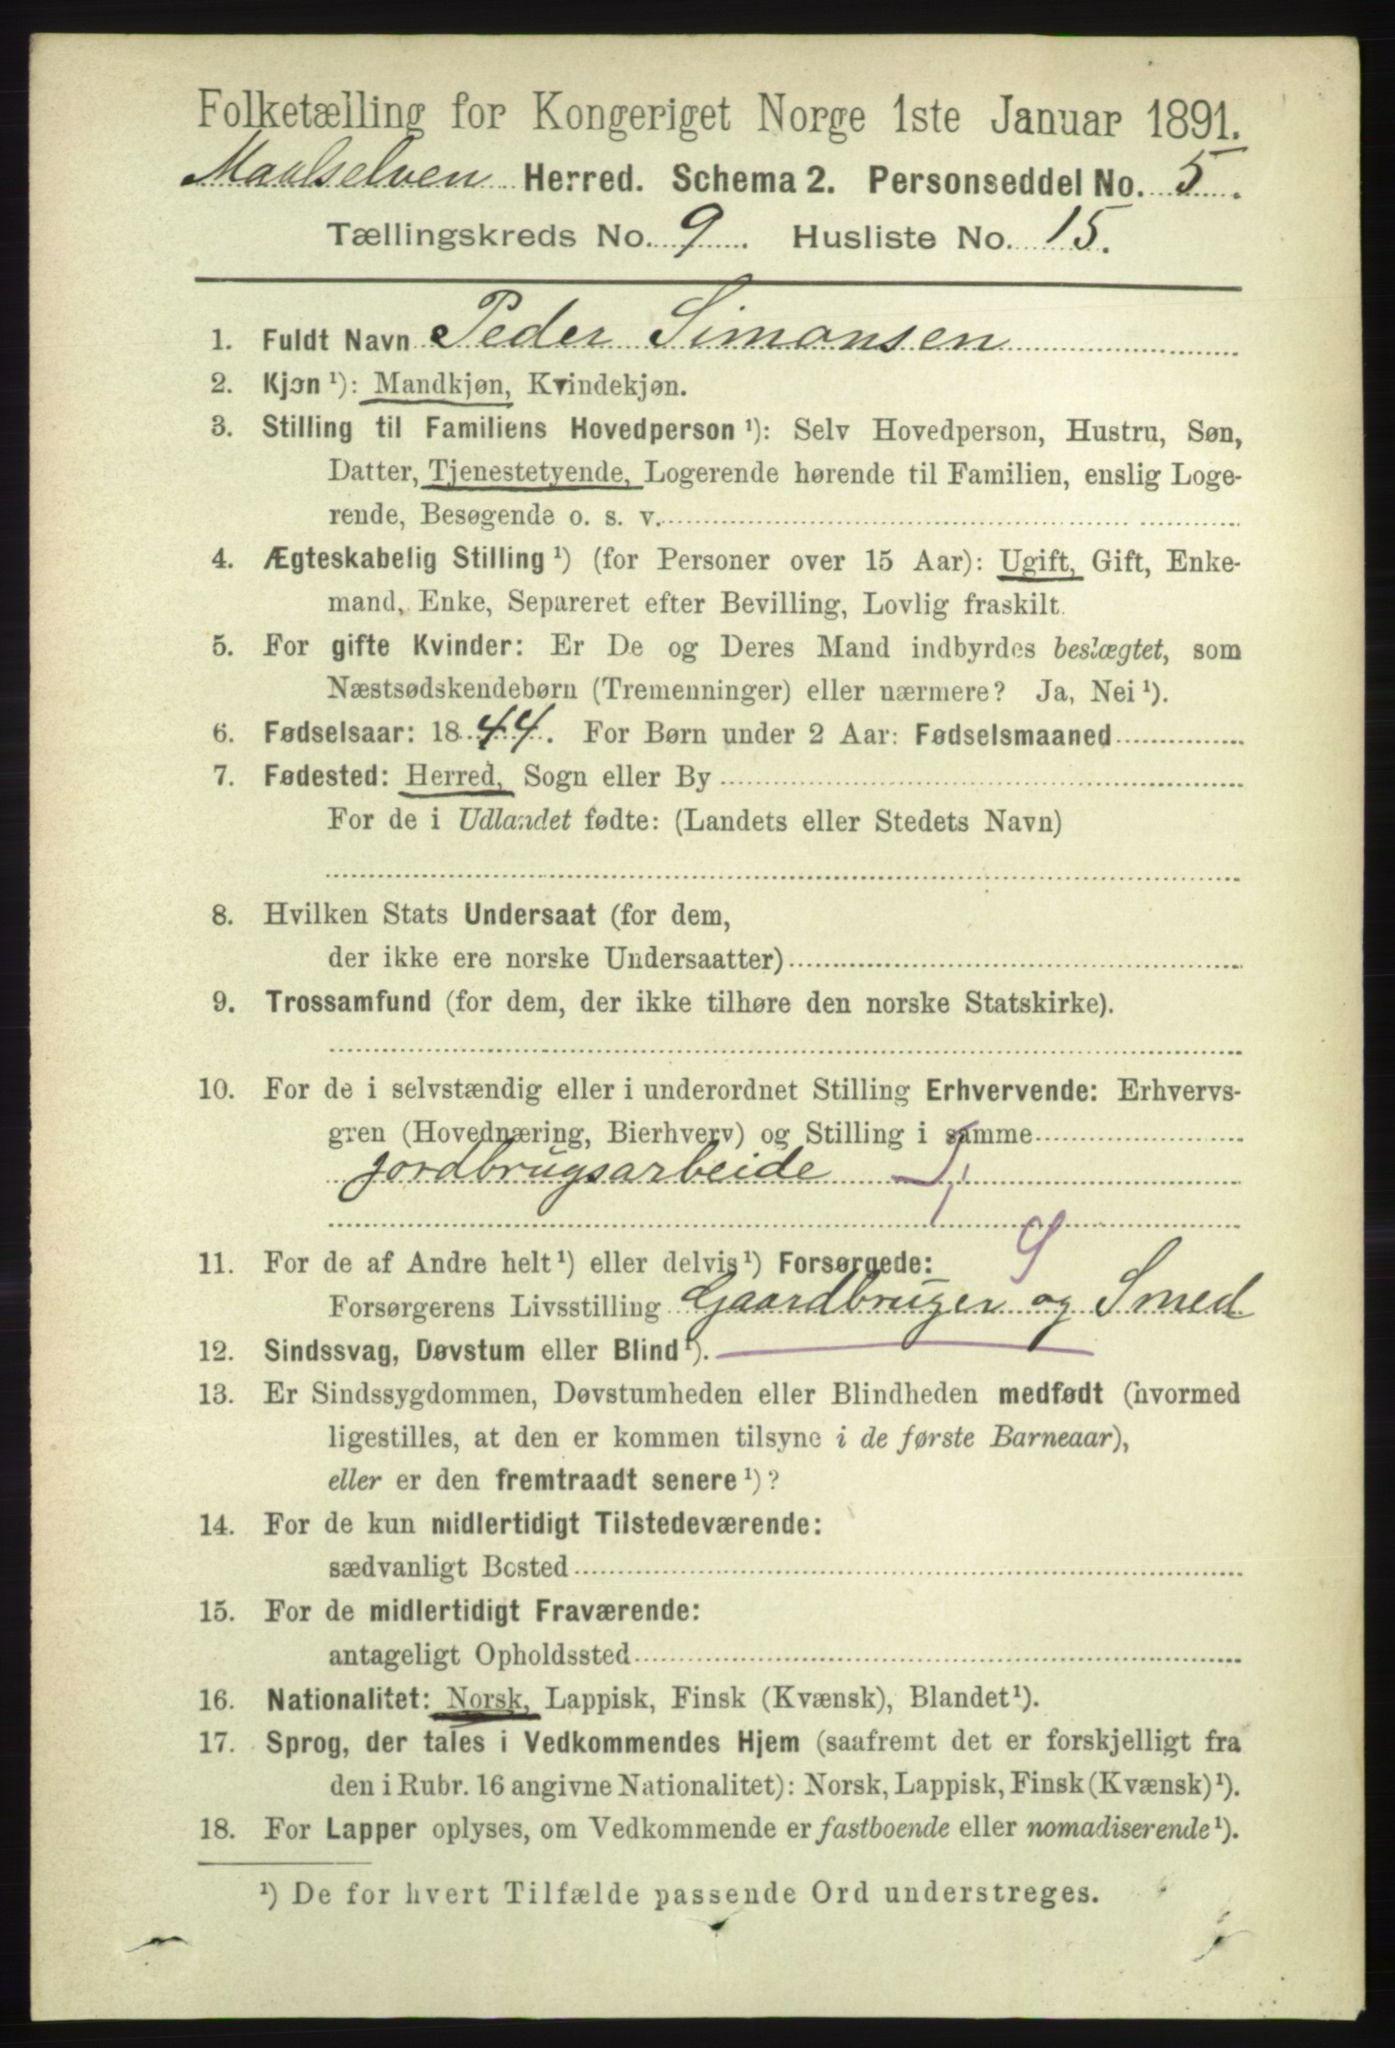 Folketælling for Kongeriget Norge 1ste Januar 1891.
Maalselven Herred. Schema 2. Personseddel No. 5.
Tællingskreds No. 9. Husliste No. 15.
1. Fuldt Navn Peder Simonsen
2. Kjøn ¹): Mandkjøn, Kvindekjøn.
3. Stilling til Familiens Hovedperson ¹): Selv Hovedperson, Hustru, Søn,
Datter, Tjenestetyende, Logerende hørende til Familien, enslig Loge-
rende, Besøgende o. s. v.
4. Ægteskabelig Stilling ¹) (for Personer over 15 Aar): Ugift, Gift, Enke-
mand, Enke, Separeret efter Bevilling, Lovlig fraskilt.
5. For gifte Kvinder: Er De og Deres Mand indbyrdes beslægtet, som
Næstsødskendebørn (Tremenninger) eller nærmere? Ja, Nei ¹).
6. Fødselsaar: 1844. For Børn under 2 Aar: Fødselsmaaned
7. Fødested: Herred, Sogn eller By
For de i Udlandet fødte: (Landets eller Stedets Navn)
8. Hvilken Stats Undersaat (for dem,
der ikke ere norske Undersaatter)
9. Trossamfund (for dem, der ikke tilhøre den norske Statskirke).
10. For de i selvstændig eller i underordnet Stilling Erhvervende: Erhvervs-
gren (Hovednæring, Bierhverv) og Stilling i samme
jordbrugsarbeide
11. For de af Andre helt ¹) eller delvis ¹) Forsørgede:
Forsørgerens Livsstilling Gaardbruger og Smed
12. Sindssvag, Døvstum eller Blind ¹).
13. Er Sindssygdommen, Døvstumheden eller Blindheden medfødt (hvormed
ligestilles, at den er kommen tilsyne i de første Barneaar),
eller er den fremtraadt senere ¹)?
14. For de kun midlertidigt Tilstedeværende:
sædvanligt Bosted
15. For de midlertidigt Fraværende:
antageligt Opholdssted
16. Nationalitet: Norsk, Lappisk, Finsk (Kvænsk), Blandet ¹).
17. Sprog, der tales i Vedkommendes Hjem (saafremt det er forskjelligt fra
den i Rubr. 16 angivne Nationalitet): Norsk, Lappisk, Finsk (Kvænsk) ¹).
18. For Lapper oplyses, om Vedkommende er fastboende eller nomadiserende ¹).
¹) De for hvert Tilfælde passende Ord understreges.